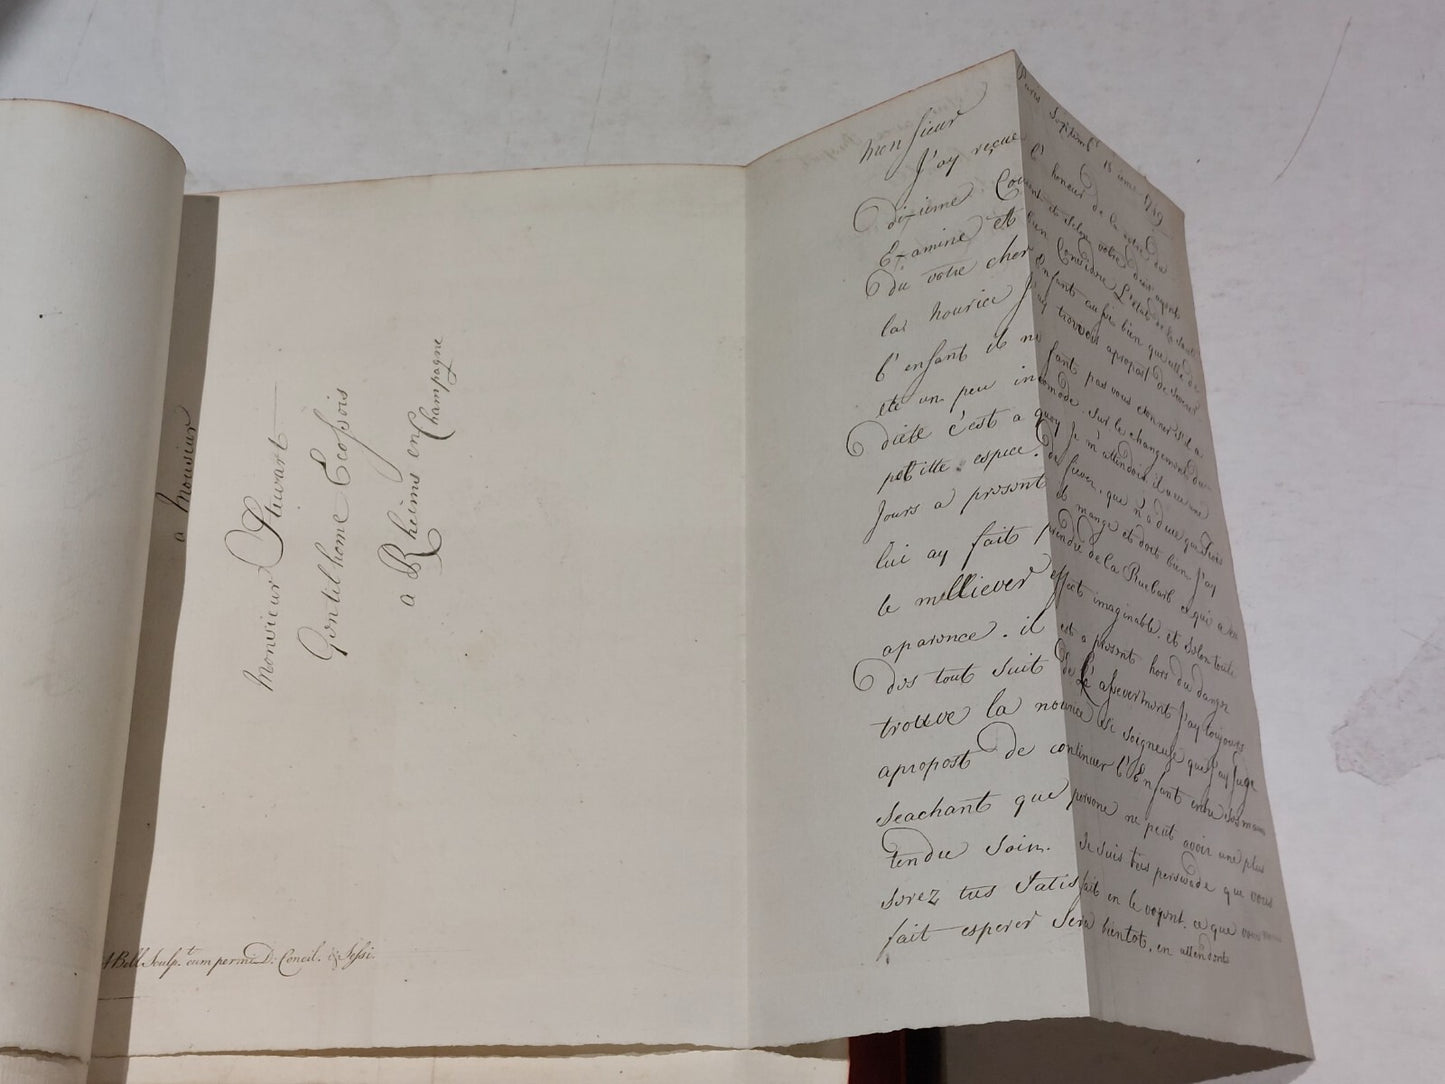 a Monsieur
Monsieur Stuwart
Gentil home Ecossois
a Rheims en Champagne
ABell Sculp.t cum permi. D. Concil. & Sessi.
Paris Septemb.r 1749
Monsieur
J'ay reçue l'honeur de la votre du
dixieme Courent et selon votre desir ayents
Examine et bien Considere L'etat de la santé
du votre cher Enfant aussi bien que celle de
la nourice J'ay trouvois apropost de sevrer
l'enfant il ne faut pas vous etonner s'il a
ete un peu incomode. Sur le changement du
diete c'est a quoy Je m'attendois, il a eu une
petitte espece. de fiever, que n'a duré que Trois
Jours a present il mange et dort bien J'ay
lui ay fait prendre de la Ruebarb ce qui a eu
le melliever effect imaginable. et selon toute
aparence. il est a present hors du danger
des tout suit de L'assevrement J'ay toujours
trouve la nourice si soigneuse que J'ay juge
apropost de continuer l'Enfant entre ses mains
seachant que persone ne peut avoir une plus
tendre soin. Je suis tres perswade que vous
serez tres satisfait en le voyent. ce que vous
fait esperer sera bientot, en attendant